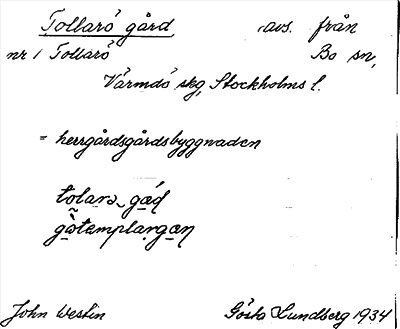 Tollarö gård avs. från
nr 1 Tollarö Bo sn,
Värmdö skg, Stockholms l.
= herrgårdsgårdsbyggnaden
tolarə gäd
götemplargæn
John Westin Gösta Lundberg 1934